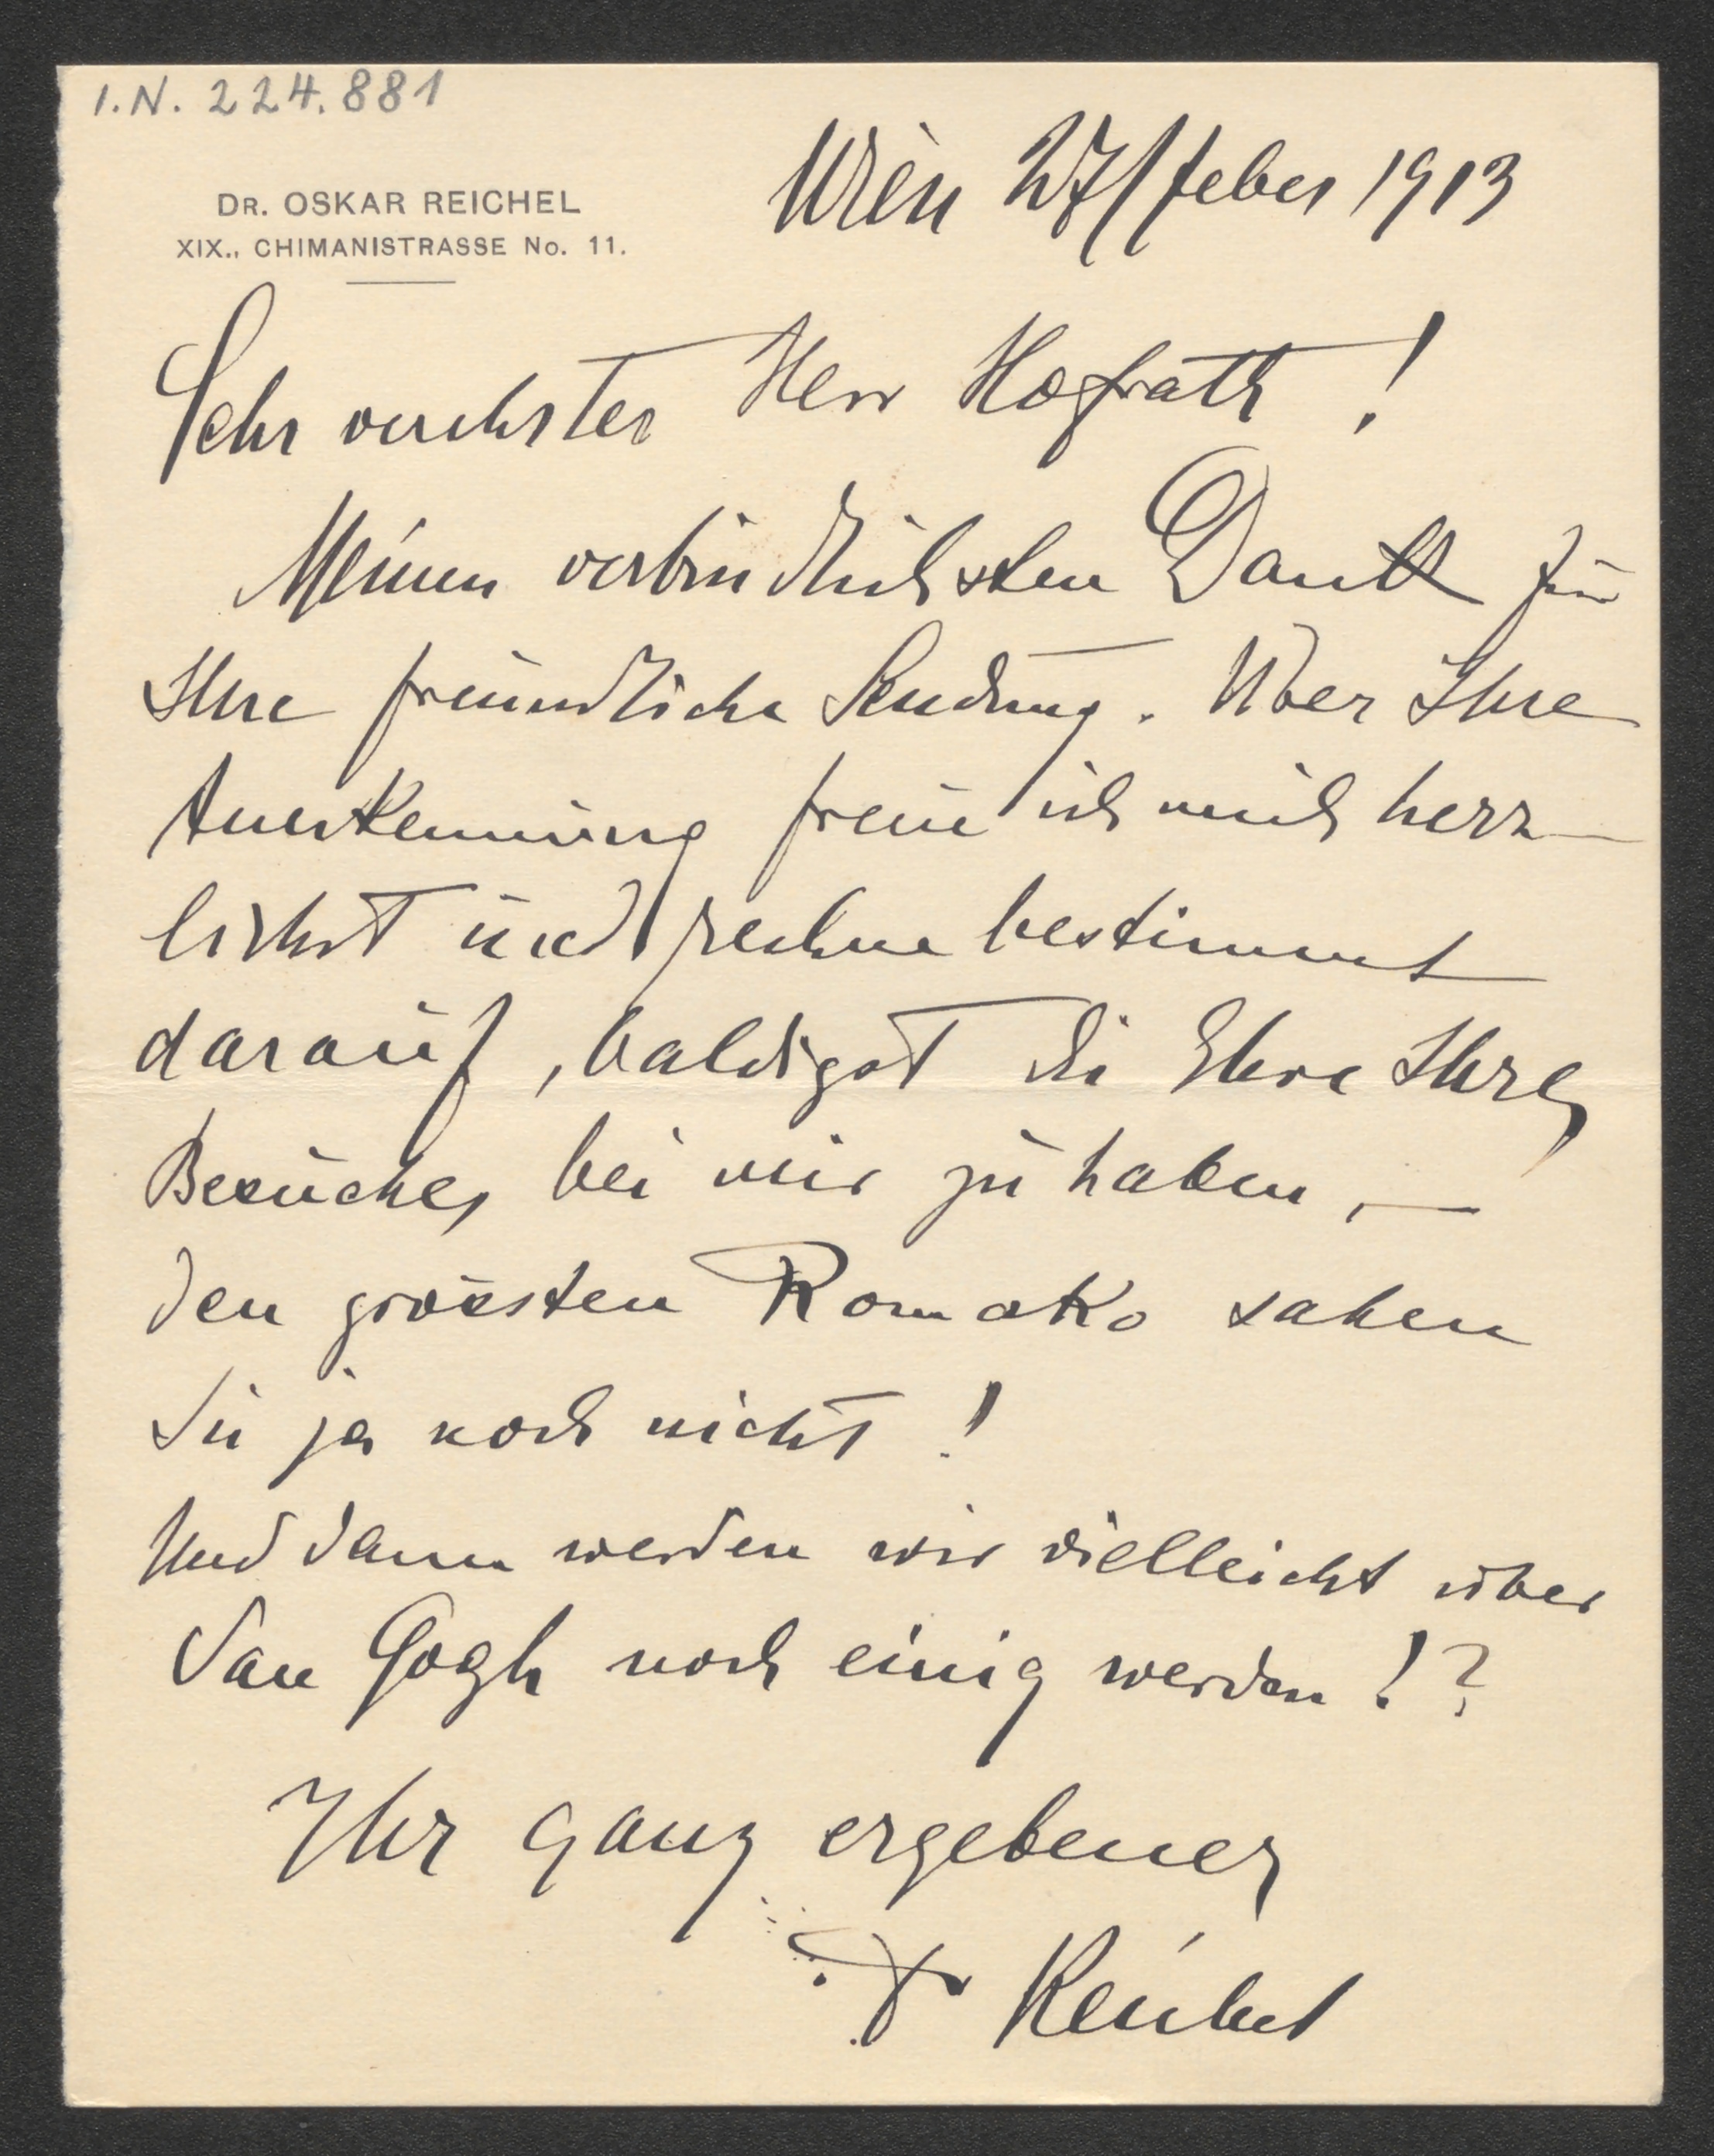 I.N. 224.881
DR. OSKAR REICHEL
XIX., CHIMANISTRASSE No. 11.
Wien 27/Feber 1913
Sehr verehrter Herr Hofrath!
Meinen verbindlichsten Dank für
Ihre freundliche Sendung. Über Ihre
Anerkennung freue ich mich herz-
lichst und rechne bestimmt
darauf, baldigst die Ehre Ihres
Besuches bei mir zu haben, —
den grössten Romako sahen
Sie ja noch nicht!
Und dann werden wir vielleicht über
Van Gogh noch einig werden!?
Ihr ganz ergebener
Dr Reichel